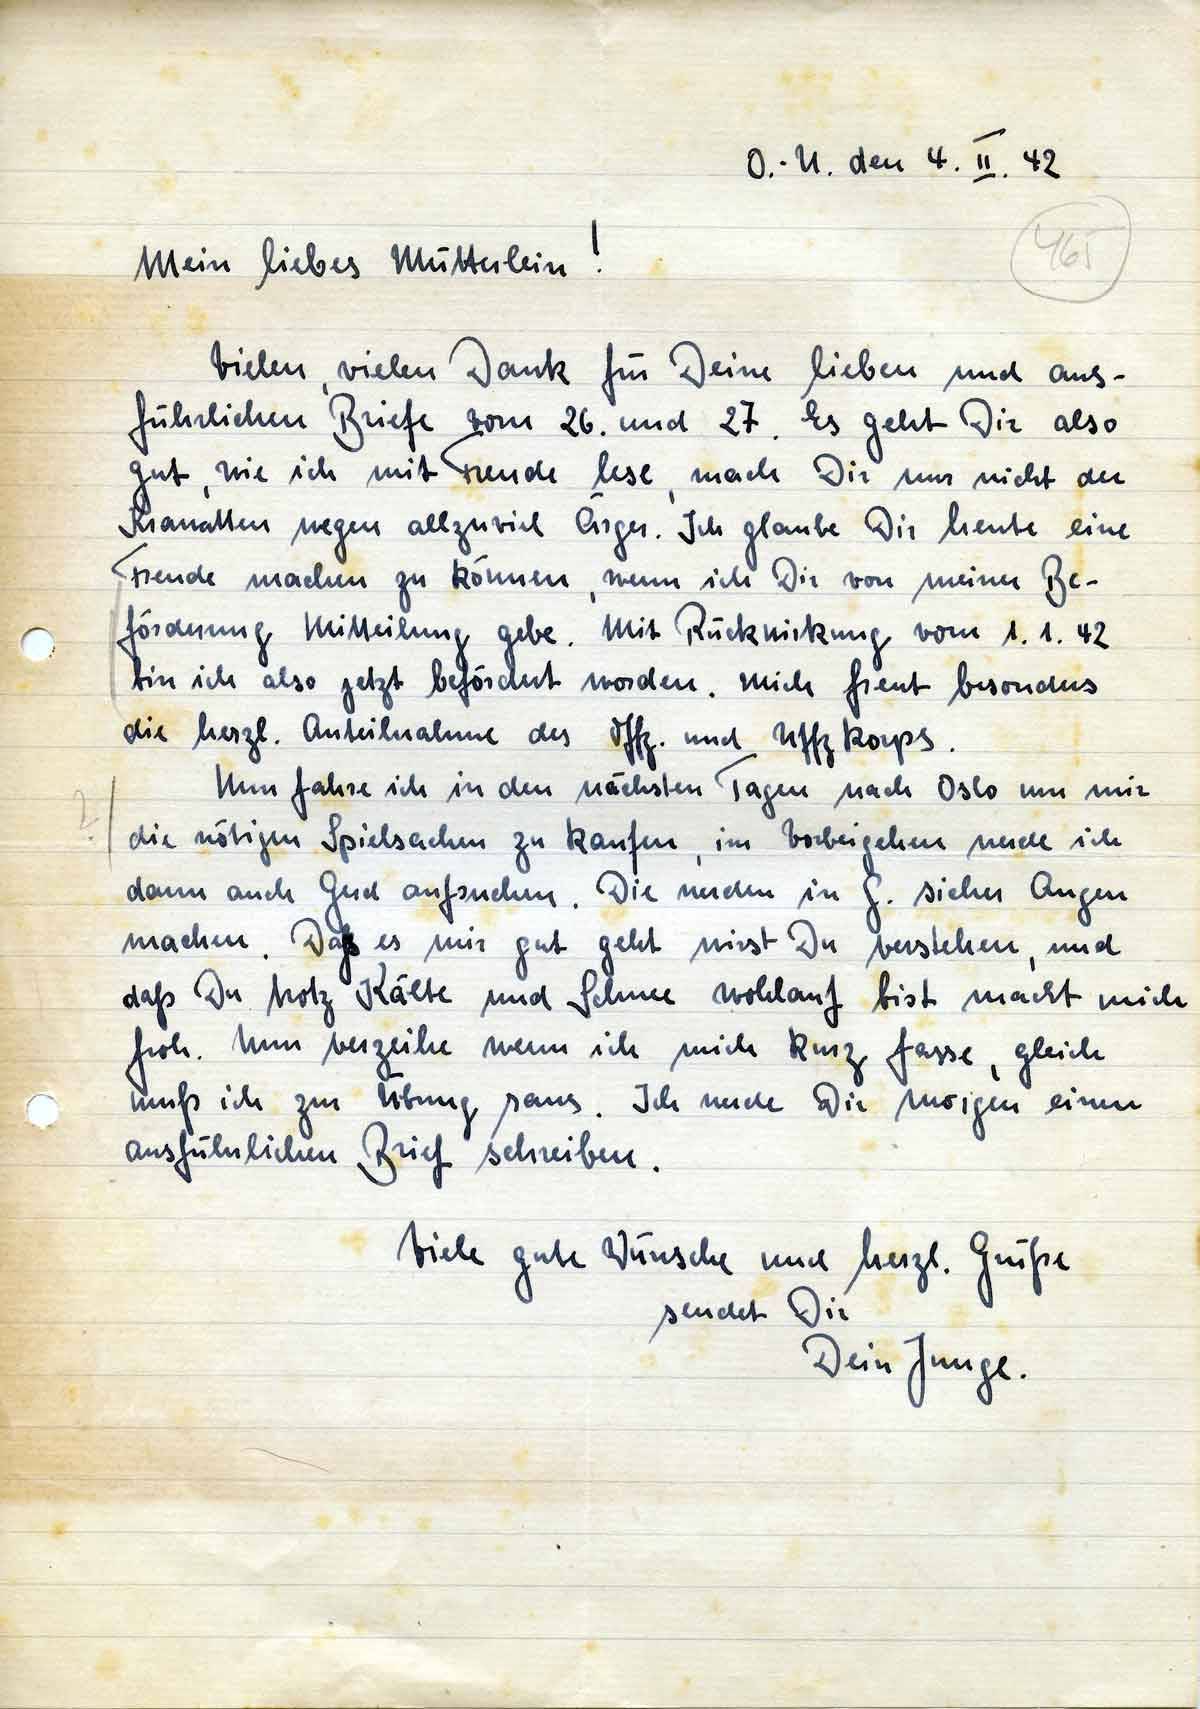 O.-U. den 4. II. 42
465
Mein liebes Mütterlein!
Vielen, vielen Dank für Deine lieben und aus-
führlichen Briefe vom 26. und 27. Es geht Dir also
gut, wie ich mit Freude lese, mach Dir nur nicht der
wegen allzuviel Ärger. Ich glaube Dir heute eine
Freude machen zu können, wenn ich Dir von meiner Be-
förderung Mitteilung gebe. Mit Rückwirkung vom 1. 1. 42
bin ich also jetzt befördert worden. Mich freut besonders
die herzl. Anteilnahme des Offz. und Uffzkorps.
Nun fahre ich in den nächsten Tagen nach Oslo um mir
?
die nötigen Spielsachen zu kaufen, im Vorbeigehen werde ich
dann auch Gerd aufsuchen. Die werden in G. sicher Augen
machen. Daß es mir gut geht wirst Du verstehen, und
daß Du trotz Kälte und Schnee wohlauf bist macht mich
froh. Nun verzeihe wenn ich mich kurz fasse, gleich
muß ich zur Übung raus. Ich werde Dir morgen einen
ausführlichen Brief schreiben.
Viele gute Wünsche und herzl. Grüße
sendet Dir
Dein Junge.